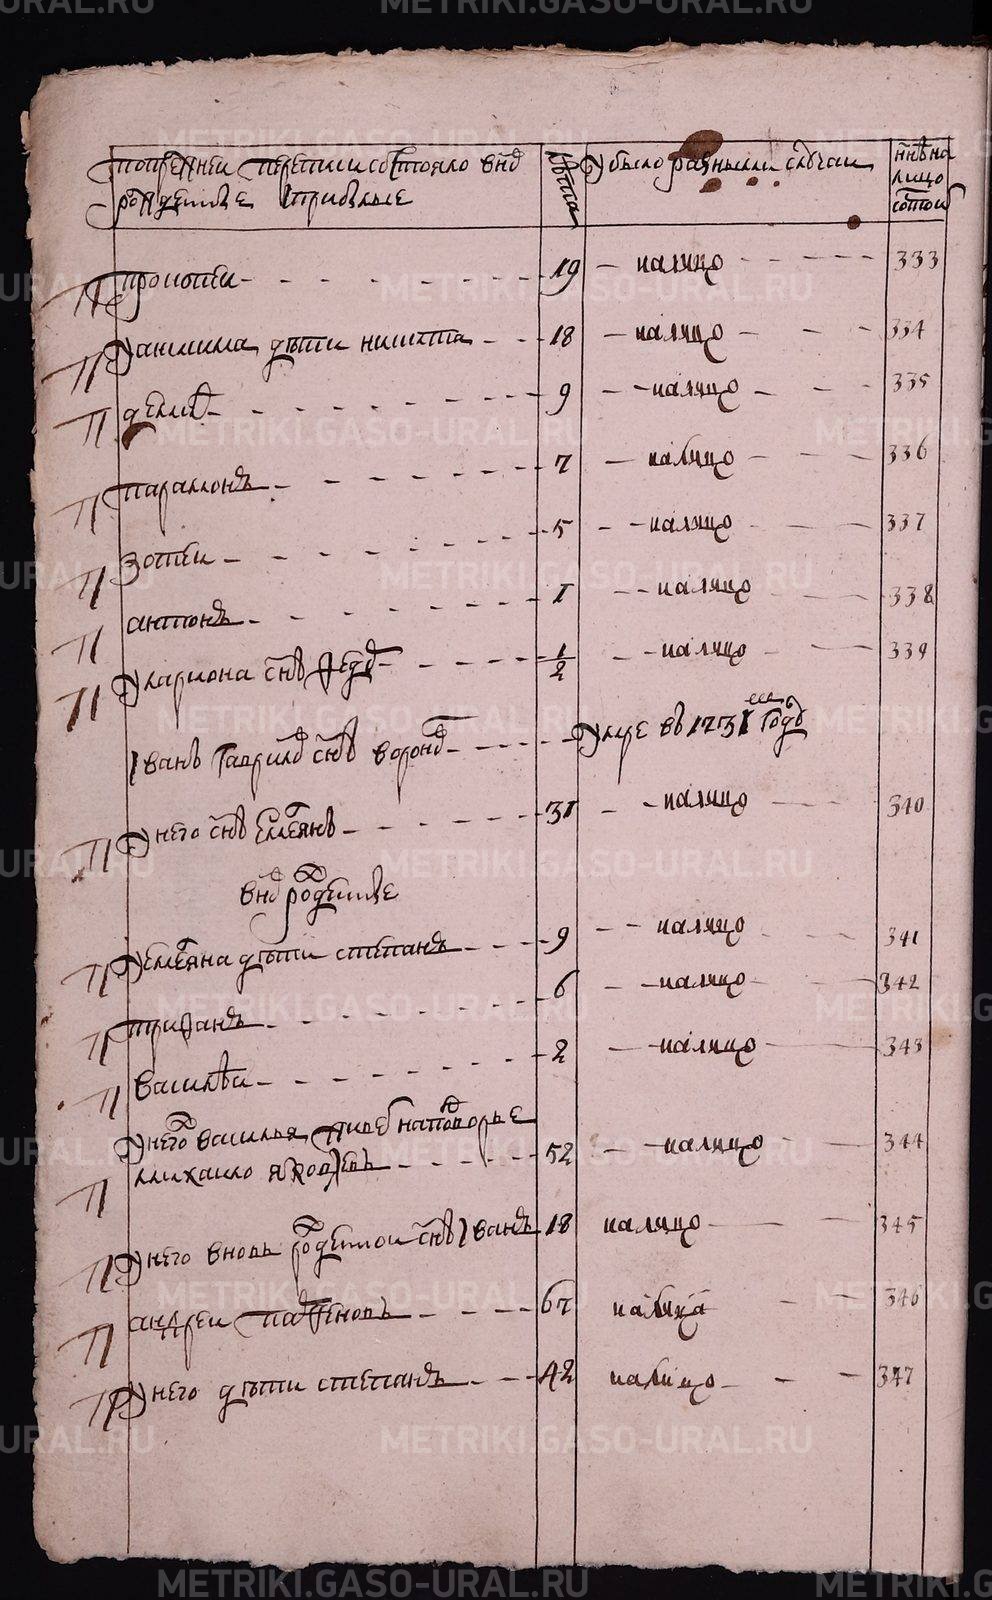 METRIKI.GASO-URAL.RU
по прежней переписи состояло вновь
рожденые и прибылые
лета
убыло разными случаи
ныне на
лицо
состоит
Прокопей 19 налицо 333
У Данилила дети Никита 18 налицо 334
Демид 9 налицо 335
Парамонъ 7 налицо 336
Зотей 5 налицо 337
антонъ 1 налицо 338
У лариона снъ Федор 1/2 налицо 339
Иванъ Гаврилов снъ воронов Умре въ 1731 году
У него снъ Емелянъ 31 налицо 340
вновь рожденые
У Емеляна дети степанъ 9 налицо 341
Трифанъ 6 налицо 342
Василей 2 налицо 343
У него василья живет на подворье
михаило яковлевъ 52 налицо 344
У него вновь рожденной снъ Иванъ 18 налицо 345
андрей Парфеновъ 67 налицо 346
У него дети степанъ 42 налицо 347